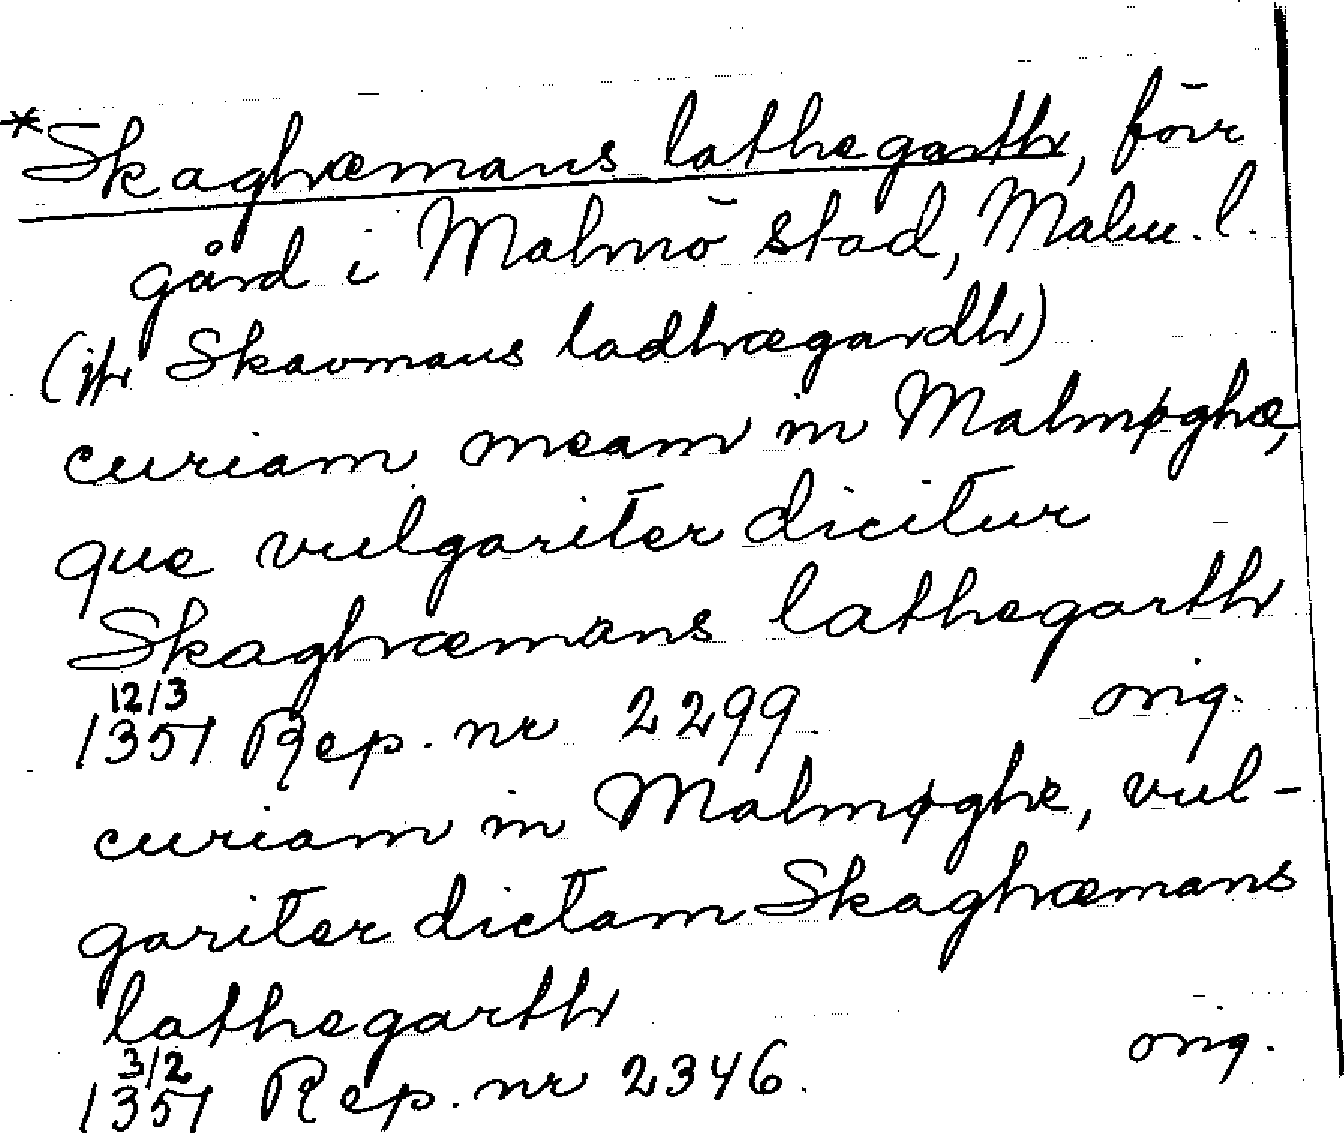 *Skaghæmans lathegarth, förr
gård i Malmö stad, Malm. l.
(jfr Skavmans ladhægardh)
curiam meam in Malmøghæ,
que vulgariter dicitur
Skaghæmans lathegarth
12/3
1351 Rep. nr 2299 orig.
curiam in Malmøghe, vul-
gariter dictam Skaghæmans
lathegarth
3/2
1351 Rep. nr 2346. orig.